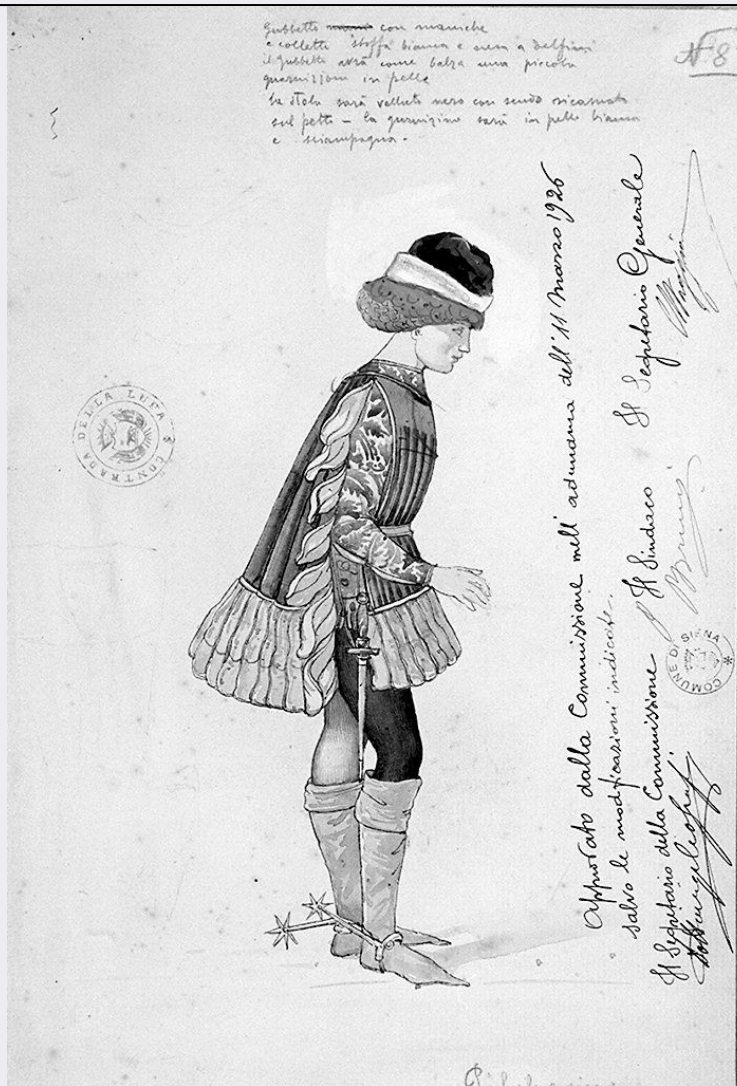 Gubbetto con maniche
e colletti stoffa bianca e nera a delfini
il gubbetto avrà come balza una piccola
guarnizione in pelle
la stola sarà velluto nero con scudo ricamato
sul petto – la guarnizione sarà in pelle bianca
e sciampagna.
N 8
CONTRADA DELLA LUPA
Approvato dalla Commissione nell'adunanza dell'11 marzo 1926
salvo le modificazioni indicate.
Il Segretario della Commissione Il Sindaco Il Segretario Generale
COMUNE DI SIENA